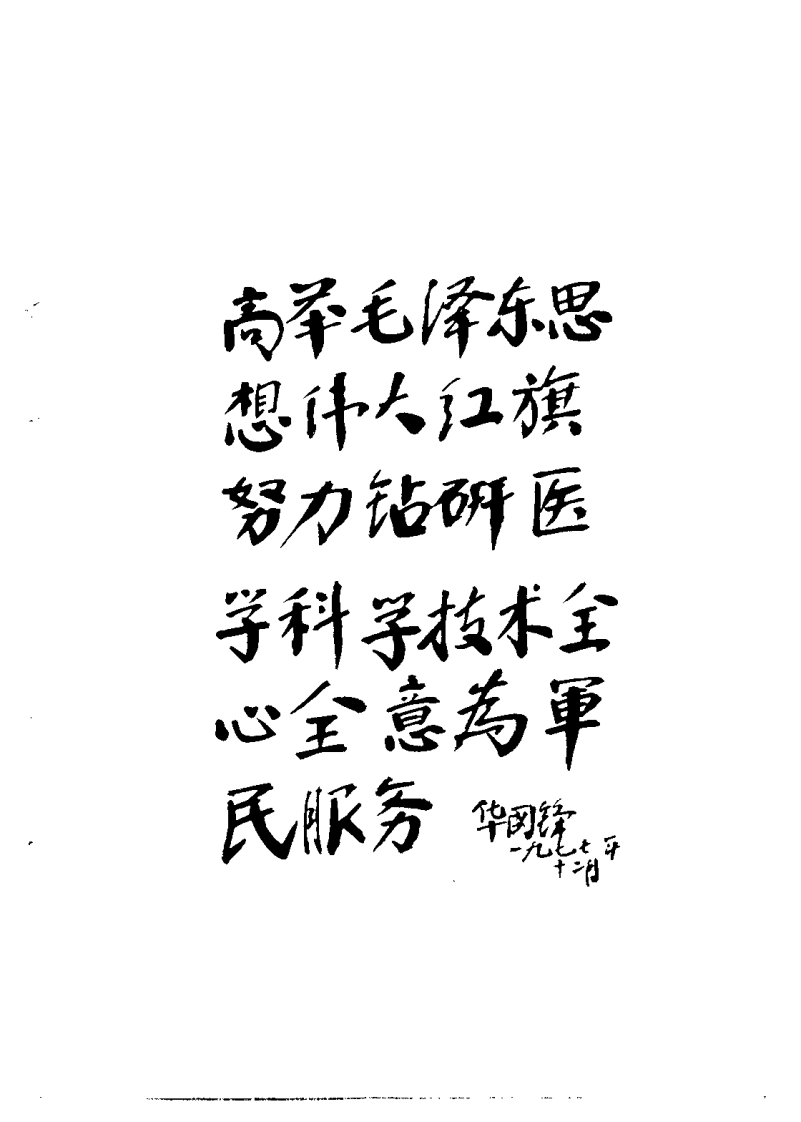 高举毛泽东思
想伟大红旗
努力钻研医
学科学技术全
心全意为軍
民服务
华国锋
一九七七年
十二月